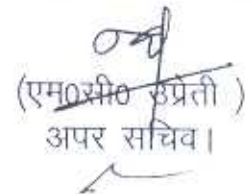 (एम०सी० उप्रेती )
अपर सचिव।